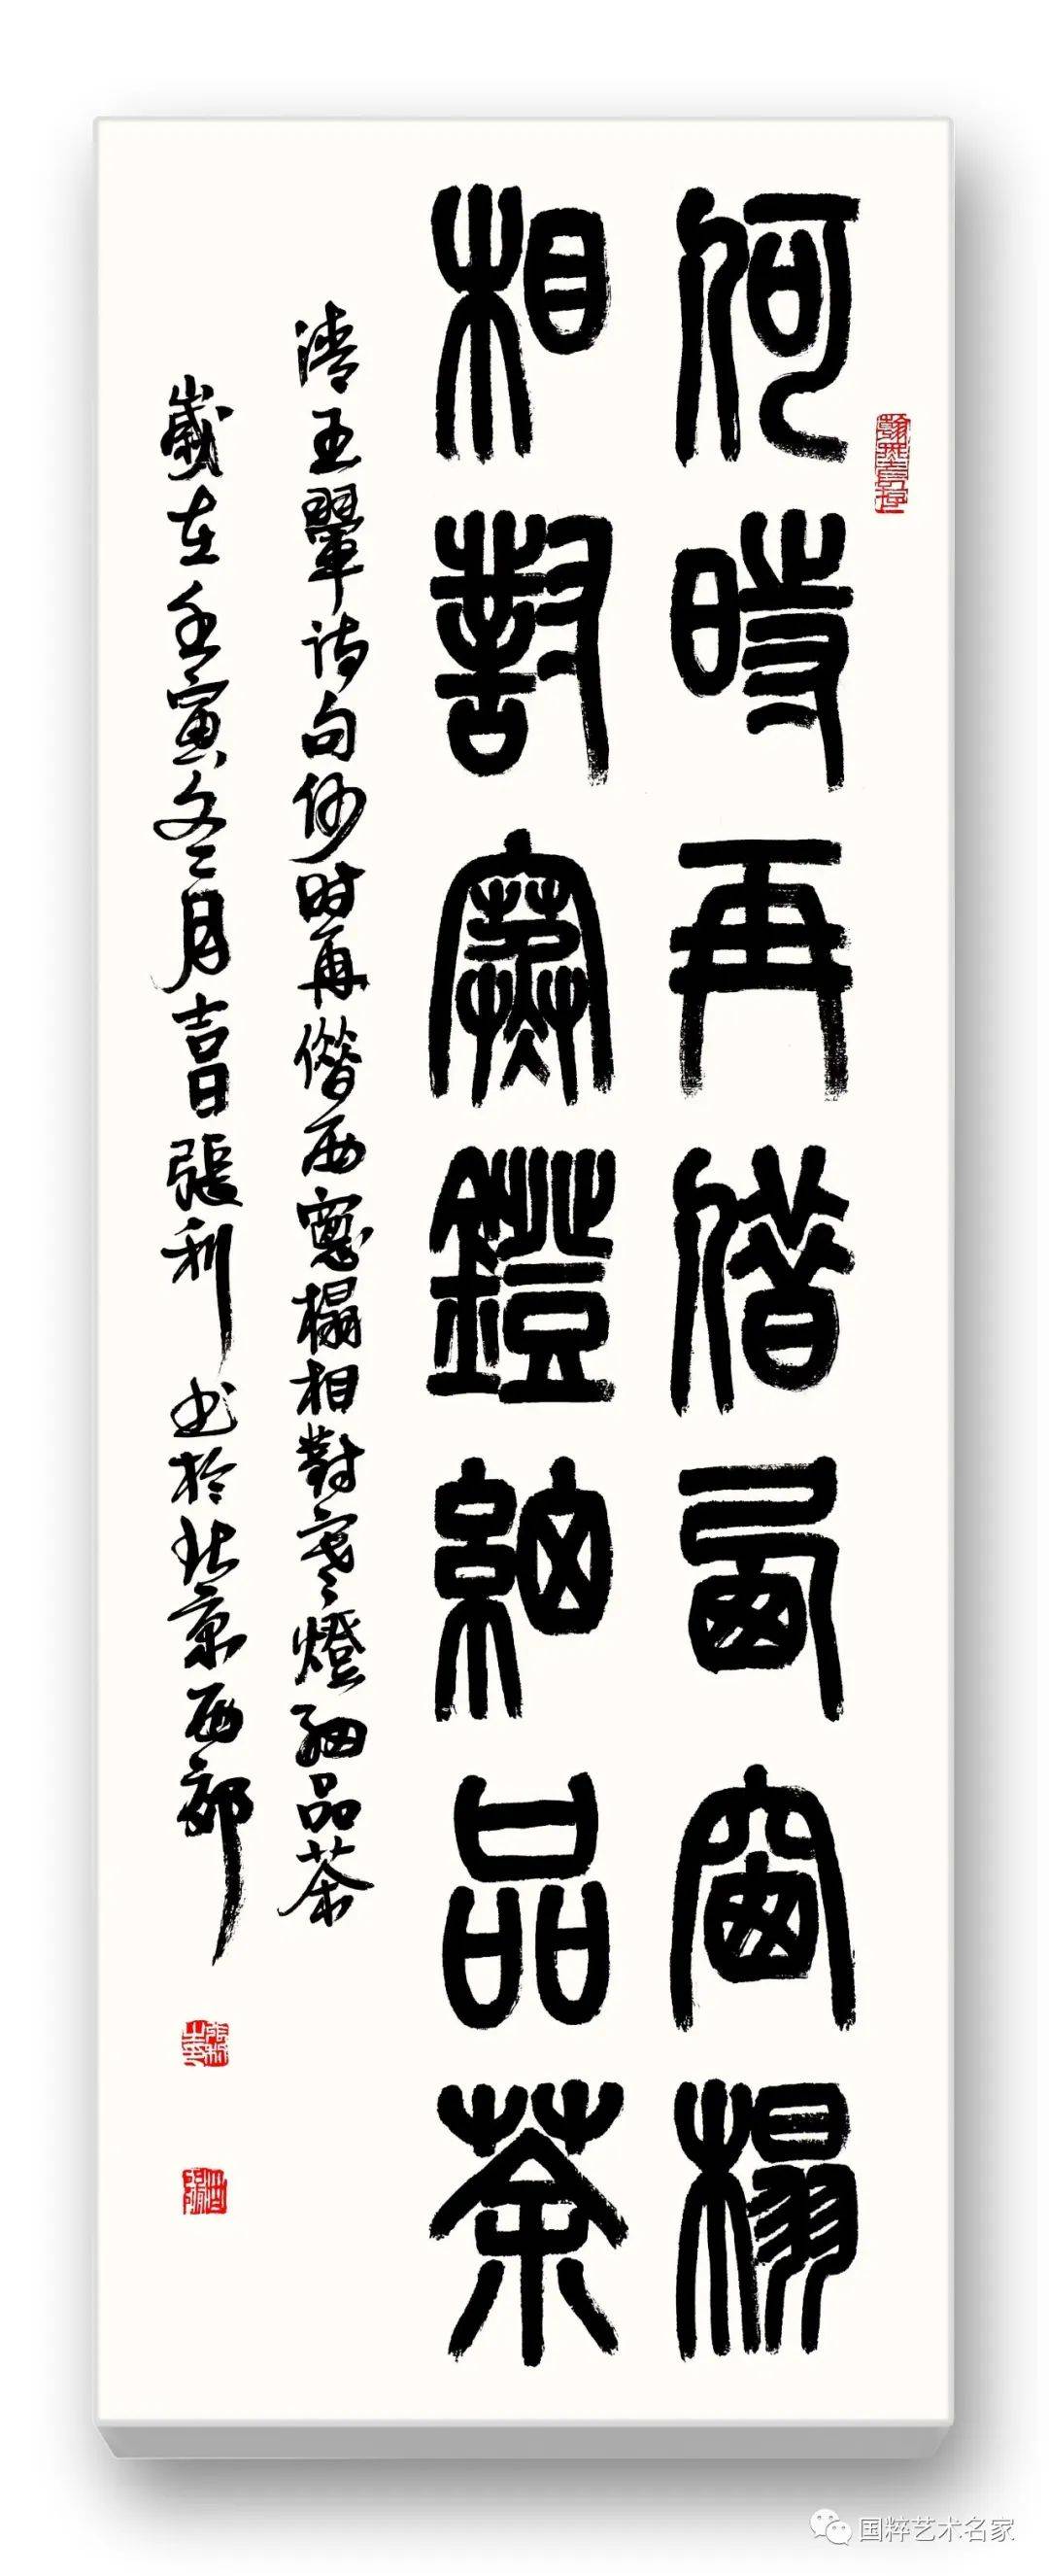 何時再借西窗榻
相對寒鐙細品茶
清王翬诗句何时再借西窻榻相對寒燈細品茶
歲在壬寅冬月吉日張利书於北京西郊
国粹艺术名家